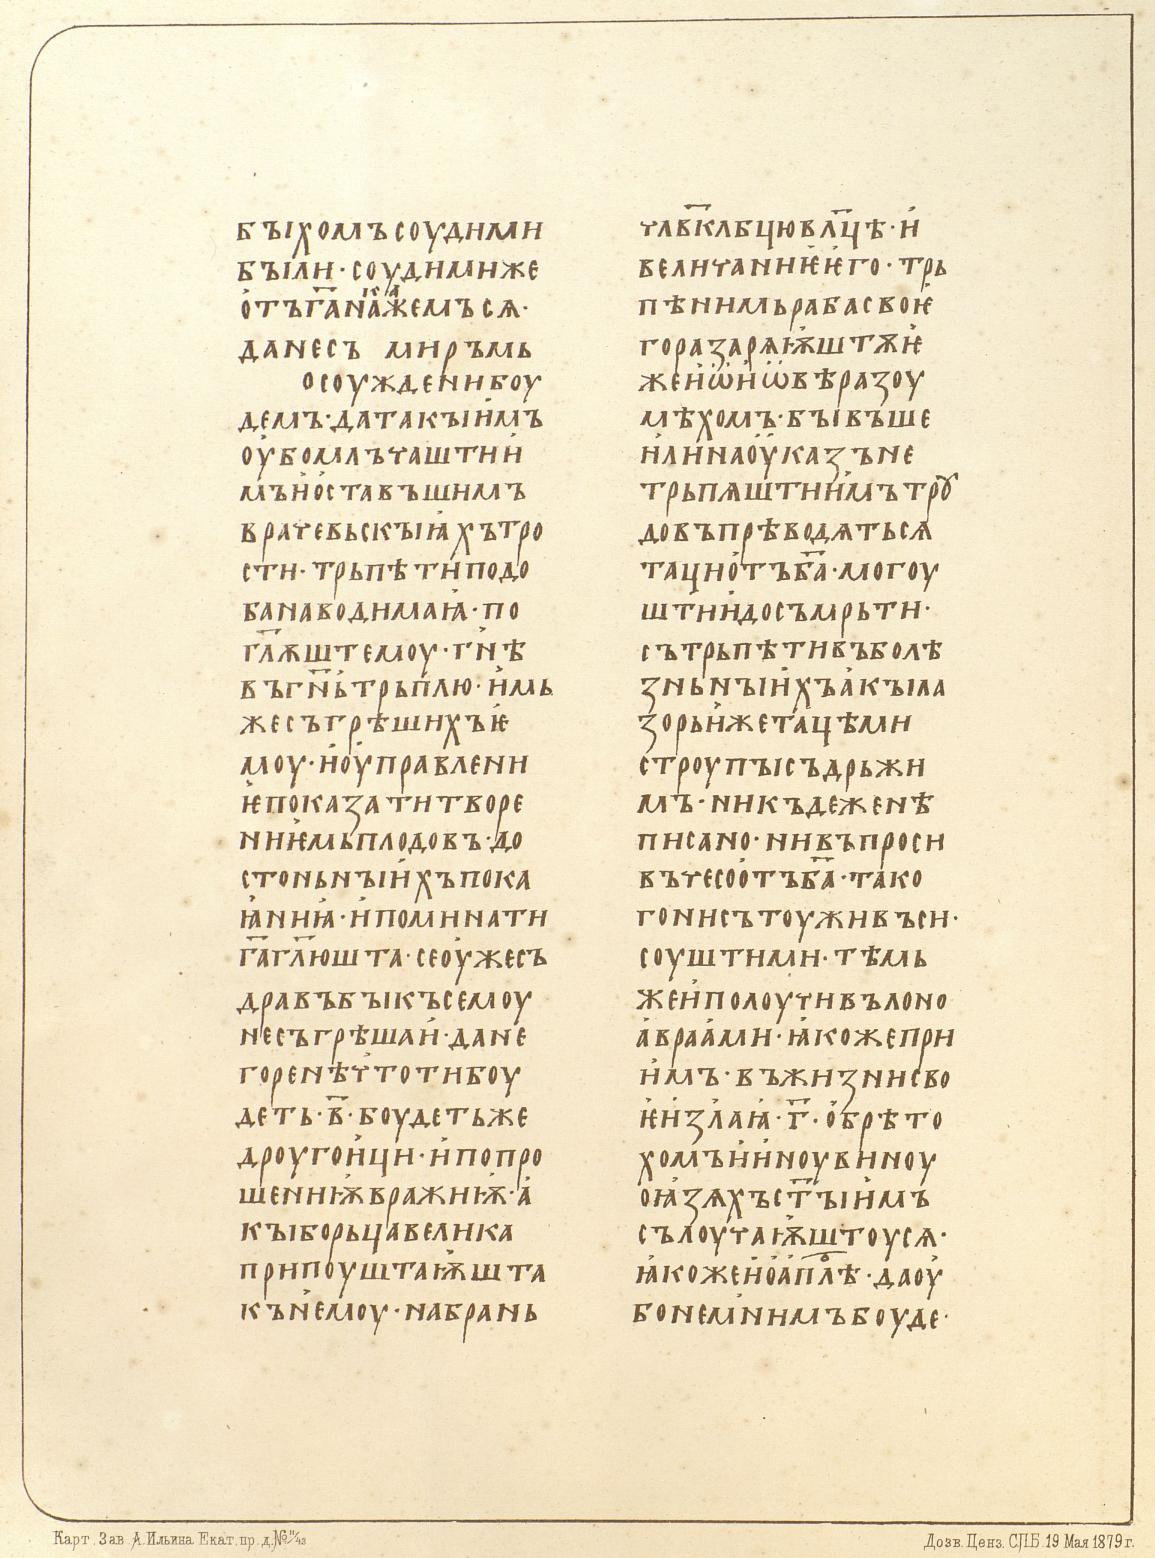 БЪІХОМЪСОУДИМИ
БЪІЛИ·СОУДИМИЖЕ
ОТЪГ҃АНАКАЖЕМЪСѦ·
ДАNЕСЪ МИРЪМЬ
ОСОУЖДЕNИБОУ
ДЕМЪ·ДАТАКЪІИМЪ
ОУБОМЛЪЧАШТИИ
МЪИОСТАВЪШИМЪ
ВРАЧЕВЬСКЪІꙖХЪТРО
СТИ·ТРЬПѢТИПОДО
БАNАВОДИМАꙖ·ПО
Г҃ЛѪШТЕМОУ·ГN҃Ѣ
ВЪГN҃ЬТРЬПЛЮ·ИМЬ
ЖЕСЪГРѢШИХЪѤ
МОУ·ИОУПРАВЛЕNИ
ѤПОКАЗАТИТВОРЕ
NИѤМЬПЛОДОВЪ·ДО
СТОNЬNЪІИХЪПОКА
ꙖNИꙖ·ИПОМИNАТИ
Г҃АГ҃ЛЮШТА·СЕОУЖЕСЪ
ДРАВЪБЪІКЪСЕМОУ
NЕСЪГРѢШАИ·ДАNЕ
ГОРЕNѢЧТОТИБОУ
ДЕТЬ·В҃·БОУДЕТЬЖЕ
ДРОУГОИЦИ·ИПОПРО
ШЕNИѬВРАЖИѬ·А
КЪІБОРЬЦАВЕЛИКА
ПРИПОУШТАѬШТА
КЪNЕМОУ·NАБРАNЬ
ЧЛВ҃КЛБЦЮВЛ҃ЦѢ·И
ВЕЛИЧАNИѤѤГО·ТРЬ
ПѢNИМЬРАБАСВОѤ
ГОРАЗАРѦѬШТѪѤ
ЖЕИѠИѠВѢРАЗОУ
МѢХОМЪ·БЪІВЪШЕ
ИЛИNАОУКАЗЪNЕ
ТРЬПѦШТИИМЪТРꙊ
ДОВЪПРѢВОДѦТЬСѦ
ТАЦИОТЪБ҃А·МОГОУ
ШТИИДОСЪМРЬТИ·
СЪТРЬПѢТИВЪБОЛѢ
ЗNЬNЪІИХЪАКЪІЛА
ЗОРЬИЖЕТАЦѢМИ
СТРОУПЪІСЪДРЬЖИ
МЪ·NИКЪДЕЖЕNѢ
ПИСАNО·NИВЪПРОСИ
ВЪЧЕСООТЪБ҃А·ТАКО
ГОNИСЪТОУЖИВЪСИ·
СОУШТИМИ·ТѢМЬ
ЖЕИПОЛОУЧИВЪЛОNО
АВРААМИ·ꙖКОЖЕПРИ
ИМЪ·ВЪЖИЗNИСВО
ѤИЗЛАꙖ·Г҃·ОБРѢТО
ХОМЪИИNОУВИNОУ
ОꙖЗѦХЪСТ҃ЪІИМЪ
СЪЛОУЧАѬШТОУСѦ·
ꙖКОЖЕИОАПЛ҃Ѣ·ДАОУ
БОNЕМNИМЪБОУДЕ·
Карт. Зав. А. Ильина Екат. пр. д. №
Дозв. Ценз. СПБ. 19 Мая 1879 г.